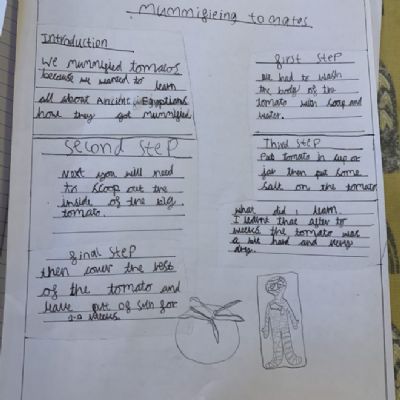 Mummifieing tomatoes
Introduction
We mummified tomatoes
because we wanted to learn
all about Ancient Egyptians
how they got mummified.
first step
We had to wash
the body of the
tomato with soap and
water.
Second Step
Next you will need
to scoop out the
inside of the big
tomato.
Third Step
Put tomato in cup or
jar then put some
salt on the tomato
What did i learn
I learnt that after to
weeks the tomato was
a bit hard and very
dry.
final Step
then cover the rest
of the tomato and
leave out of sun for
weeks.